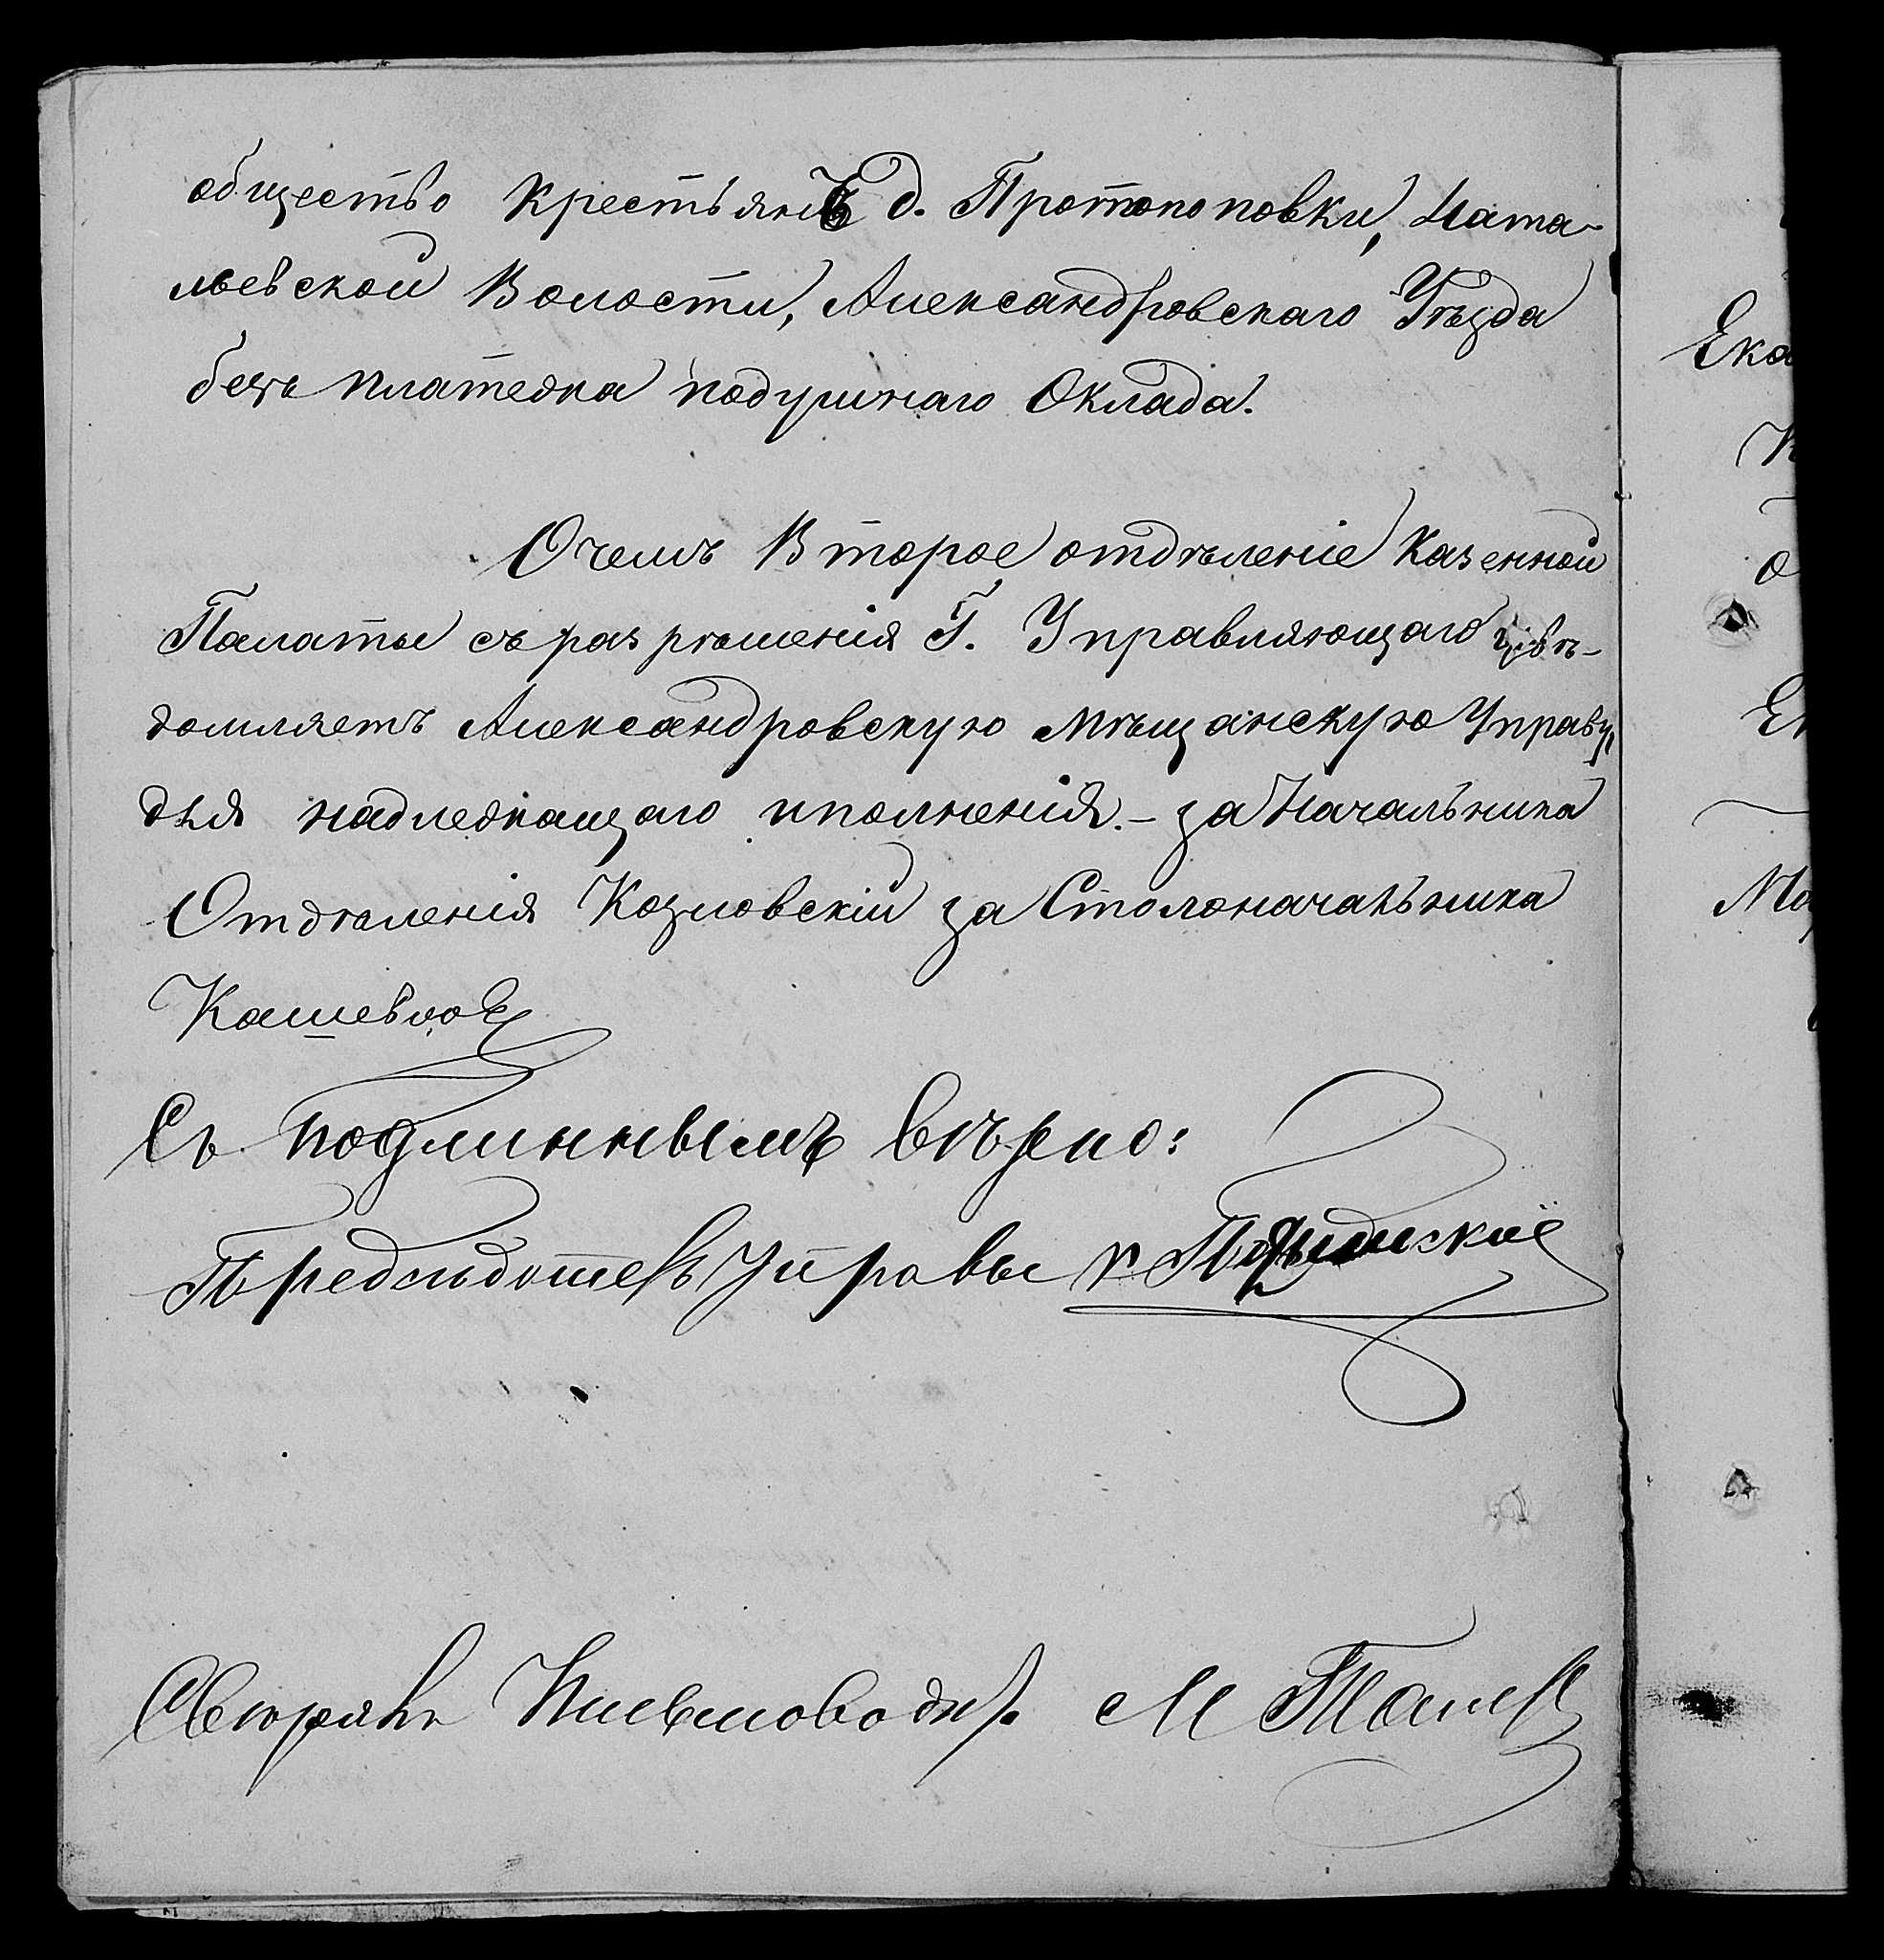 общество крестьянъ д. Протопоповки, Ната-
льевской Волости, Александровскаго Уѣзда
безъ платежа подушнаго Оклада.
Очемъ Второе отдѣленіе Казенной
Палаты съ разрѣшенія Г. Управляющаго увѣ-
домляетъ Александровскую Мѣщанскую Управу,
для надлежащаго иполненія. – за Начальника
Отдѣленія Козловскій за Столоначальника
Съ подлиннымъ вѣрно:
Предсѣдатель Управы
Свѣрялъ Письмоводит. М
Ека